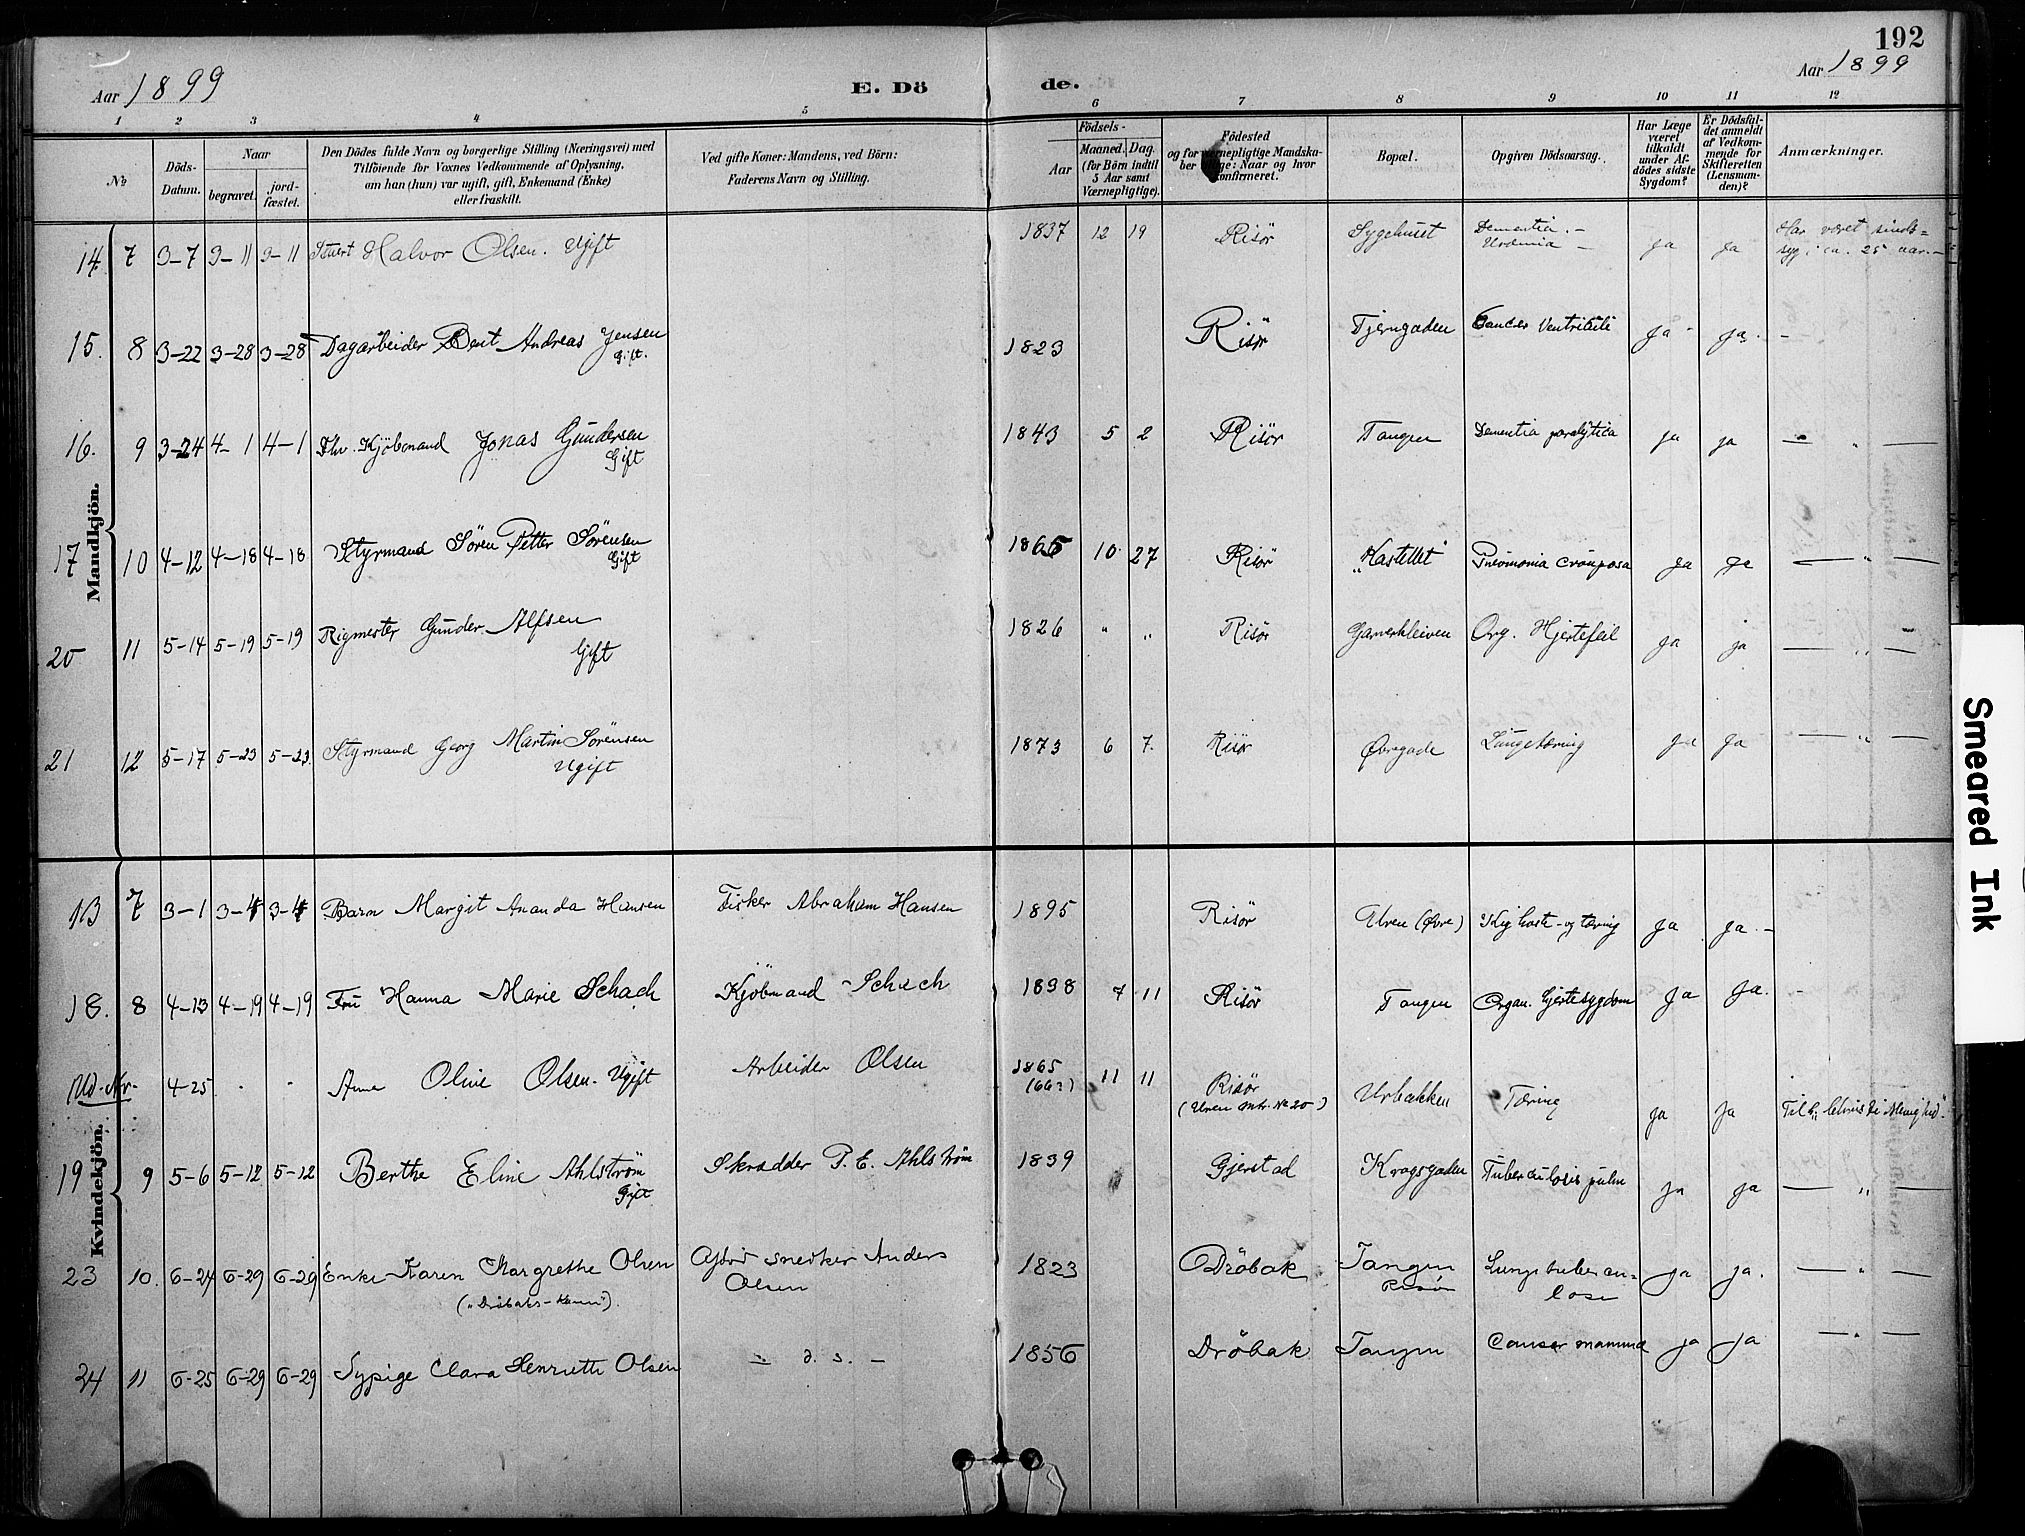 192
Aar 1899
E. Dö
de.
Aar 1899
1 2 3 4 5 6 7 8 9 10 11 12
No
Döds-
Datum.
Naar
begravet.
jord-
fæstet.
Den Dödes fulde Navn og borgerlige Stilling (Næringsvei) med
Tilföiende for Voxnes Vedkommende af Oplysning,
om han (hun) var ugift, gift, Enkemand (Enke)
eller fraskilt.
Ved gifte Koner: Mandens, ved Börn:
Faderens Navn og Stilling.
Födsels-
Aar
Maaned. Dag.
(for Börn indtil
5 Aar samt
Værnepligtige).
Födested
og for værnepligtige Mandska-
ber tillige: Naar og hvor
konfirmeret.
Bopæl.
Opgiven Dödsaarsag.
Har Læge
været
tilkaldt
under Af-
dödes sidste
Sygdom?
Er Dödsfal-
det anmeldt
af Vedkom-
mende for
Skifteretten
(Lensman-
den)?
Anmærkninger.
Mandkjön.
14. 7 3-7 3-11 3-11 Halvor Olsen. Ugift 1837 12 19 Risör Sygehuset Dementia. - ja ja Har været sinds-
syg i ca. 25 aar. -
15. 8 3-22 3-28 3-28 Dagarbeider Bent Andreas Jensen
Gift. 1823 Risör Tjerngaden Cancer Ventriculi ja ja. -
16. 9 3-24 4-1 4-1 Fhv. Kjöbmand Jonas Gundersen
Gift 1843 5 2 Risör Tangen Dementia paralytica ja ja — " —
17 10 4-12 4-18 4-18 Styrmand Sören Petter Sörensen
Gift 1865 10 27 Risör „Kastellet" Pneumonia crouposa ja ja — " —
20 11 5-14 5-19 5-19 Rigmester Gunder Alfsen
Gift 1826 " " Risör Garverkleiven Org. Hjertefeil ja ja — " —
21 12 5-17 5-23 5-23. Styrmand Georg Martin Sörensen
Ugift 1873 6 7. Risör Øvregade Lungetæring ja ja — " —
Kvindekjön.
13 7 3-1 3-4 3-4 Barn Margit Ananda Hansen Fisker Abraham Hansen 1895 Risör Uren (Øvre) Kighoste - og tæring ja ja. -
18. 8 4-13 4-19 4-19 Fru Hanna Marie Schach Kjöbmand Schach 1838 7 11 Risör Tangen Organ. Hjertesygdom ja ja. -
Ud.-Nr- 4-25 . - Anne Oline Olsen. Ugift Arbeider Olsen 1865
(66?) 11 11 Risör
(Uren Mtr. No 20) Urbakken Tæring ja ja
19 9 5-6 5-12 5-12 Berthe Eline Ahlström
Gift Skrædder P. E. Ahlström 1839 Gjerstad Kragsgaden Tuberculosis pulm ja ja — " —
23 10. 6-24 6-29 6-29 Enke Karen Margrethe Olsen
("Dröbaks-Karen"). Afdöd snedker Anders
Olsen 1823 Dröbak Tangen
Risör Lungetubercu-
lose ja ja. — " —
24 11 6-25 6-29 6-29 Sypige Clara Henriette Olsen — d. s. — 1856 Dröbak Tangen Cancer mamma ja ja — " —
Smeared Ink